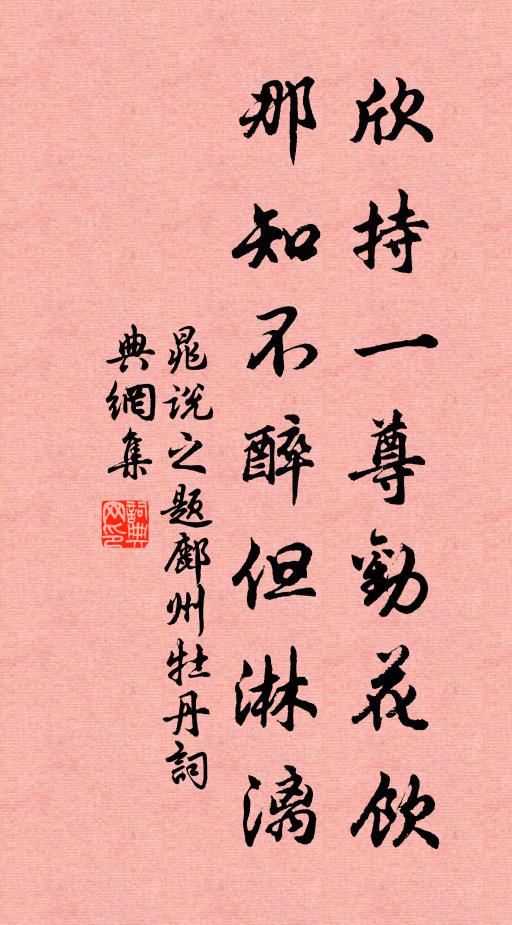 欣持一尊勸花飲
那知不醉但淋漓
晁說之題鄜州牡丹詞
典網集
詞典
网印